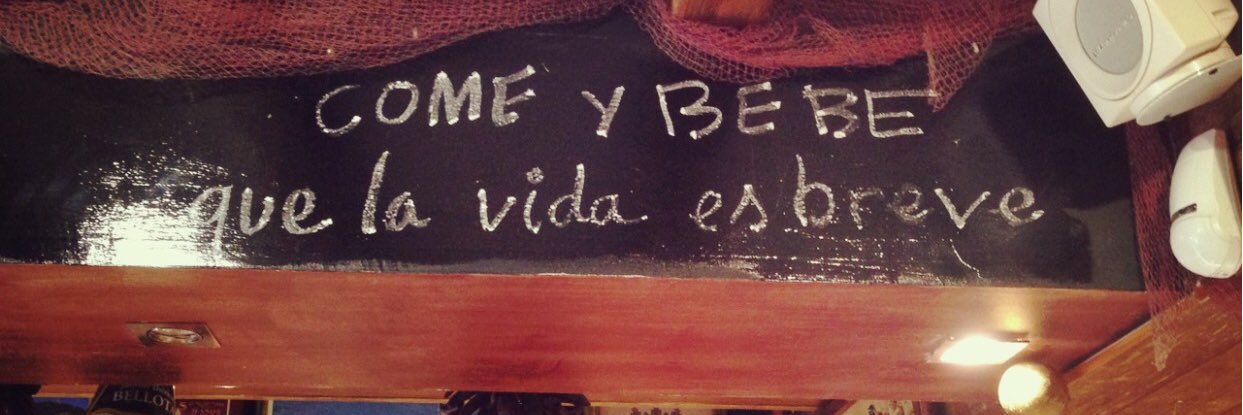 COME Y BEBE
que la vida es breve
BELLOT